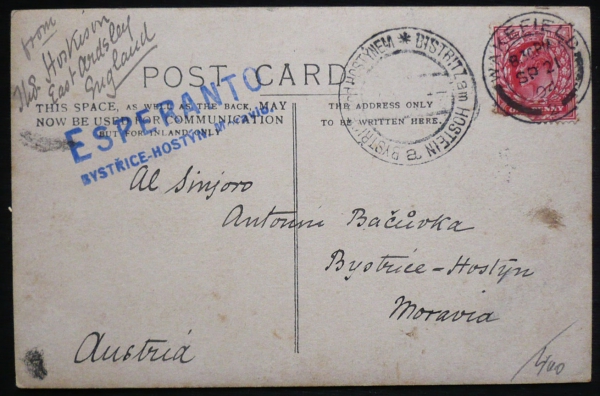 from
Hoskison
East Ardsley
England
POST CARD
THIS SPACE, AS WELL AS THE BACK, MAY
NOW BE USED FOR COMMUNICATION
BUT FOR INLAND ONLY
THE ADDRESS ONLY
TO BE WRITTEN HERE.
ESPERANTO
BYSTŘICE-HOSTÝN
BISTRITZ am HOSTEIN
WAKEFIELD
SP 21
Al Sinjoro
Antonín Bačůvka
Bystrice-Hostýn
Moravia
Austria